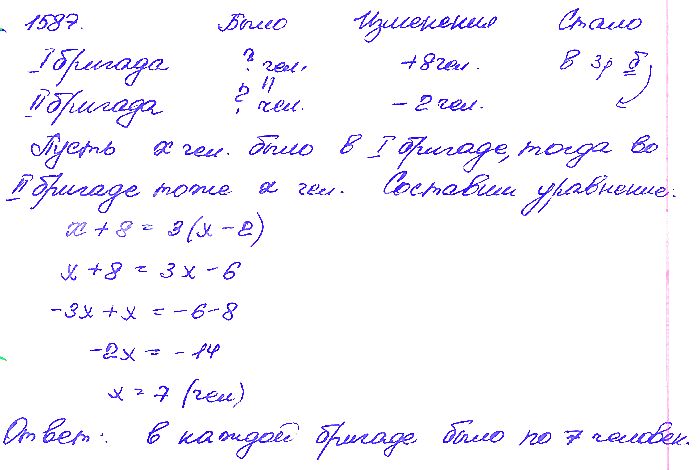 1587. Было Изменения Стало
I бригада ? чел. +8 чел. в 3 р б
II бригада ? чел. - 2 чел.
Пусть x чел. было в I бригаде, тогда во
II бригаде тоже x чел. Составим уравнение:
x + 8 = 3 (x - 2)
x + 8 = 3x - 6
-3x + x = -6-8
-2x = -14
x = 7 (чел)
Ответ: в каждой бригаде было по 7 человек.